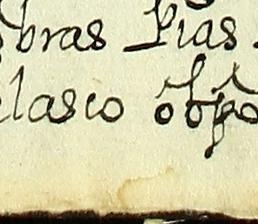 obras Pias
elasco obpo